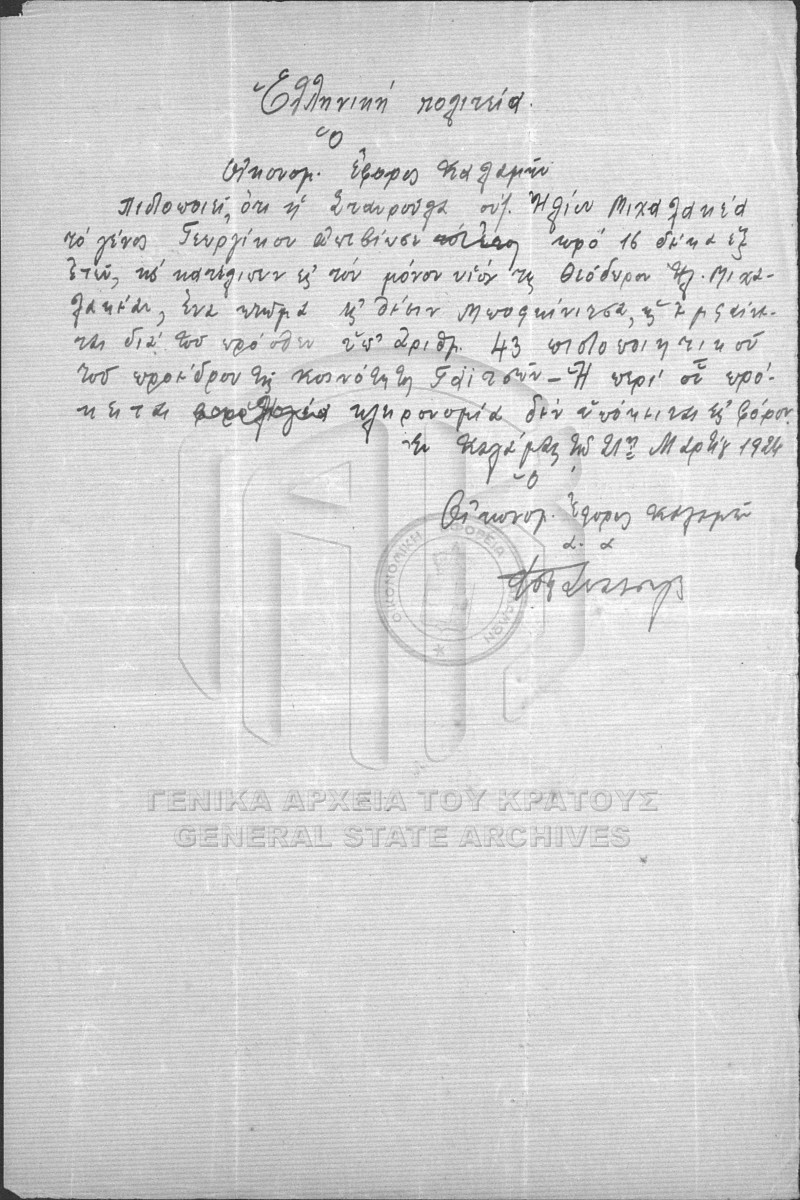 Ἑλληνική πολιτεία.
Ὁ
Οἰκονομ. Ἔφορος Καλαμῶν
Πιστοποιεῖ, ὅτι ἡ Σταυρούλα συζ. Ἠλίου Μιχαλακέα
τό γένος Γεωργίκου ἀπεβίωσε πρό 16 δέκα ἕξ
ἐτῶν, κὲ κατέλιπεν εἰς τόν μόνον υἱόν της Θεόδωρον Ἠλ. Μιχα-
λακέαν, ἕνα κτῆμα εἰς θέσιν Μποσκίνιτσα, ὡς ἐμφαίνε-
ται διά τοῦ πρόσθεν ὑπ' ἀριθμ. 43 πιστοποιητικοῦ
τοῦ προέδρου τῆς κοινότητος Γαϊτσῶν – Ἡ περί οὗ πρό-
κειται κληρονομία δέν ὑπόκειται εἰς φόρον.
Ἐν Καλάμαις τῇ 21ῃ Μαρτίου 1924
Ὁ
Οἰκονομ. Ἔφορος Καλαμῶν
α. α
ΟΙΚΟΝΟΜΙΚΗ ΕΦΟΡΕΙΑ ΚΑΛΑΜΩΝ
ΓΕΝΙΚΑ ΑΡΧΕΙΑ ΤΟΥ ΚΡΑΤΟΥΣ
GENERAL STATE ARCHIVES